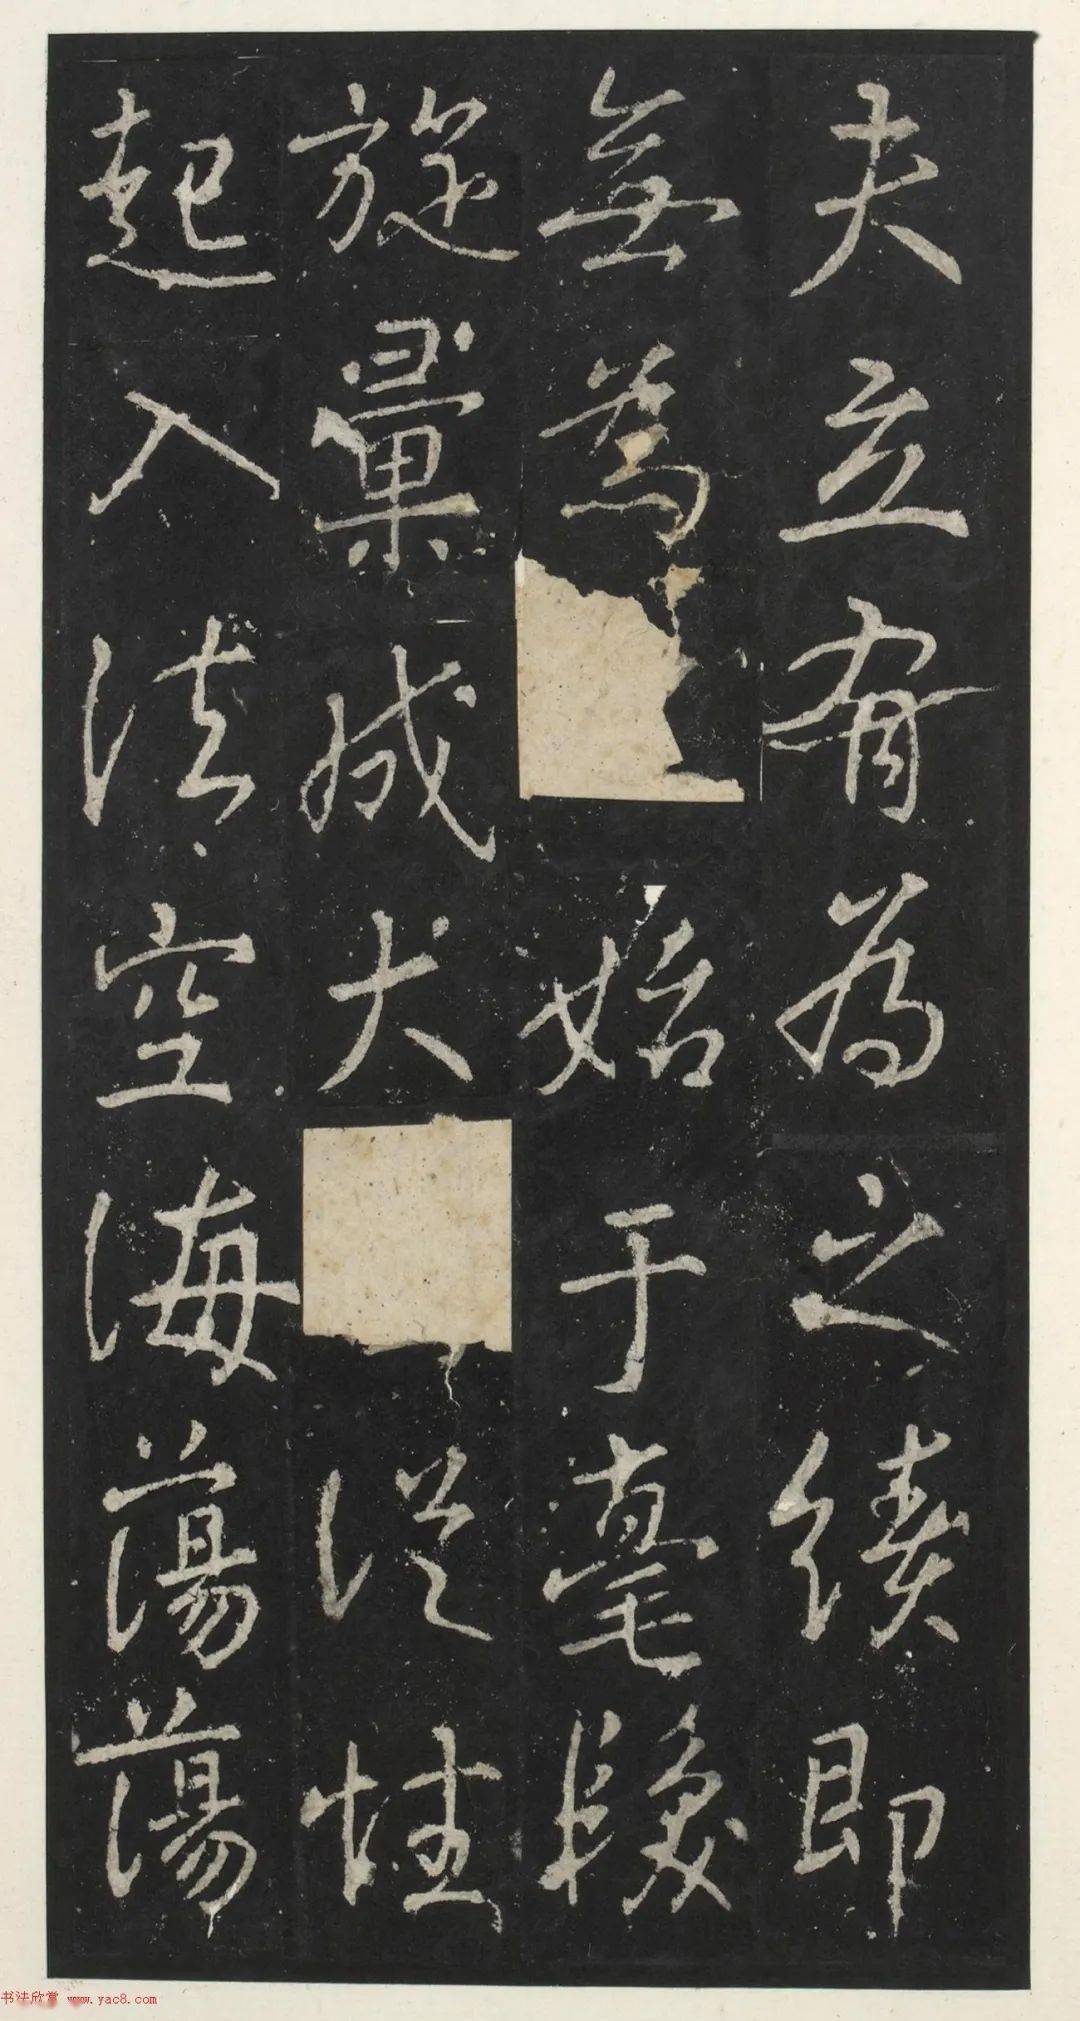 夫立有為之績即
無為始于毫髮
旋彙成大從性
起入法空海蕩蕩
书法欣赏 www.yac8.com